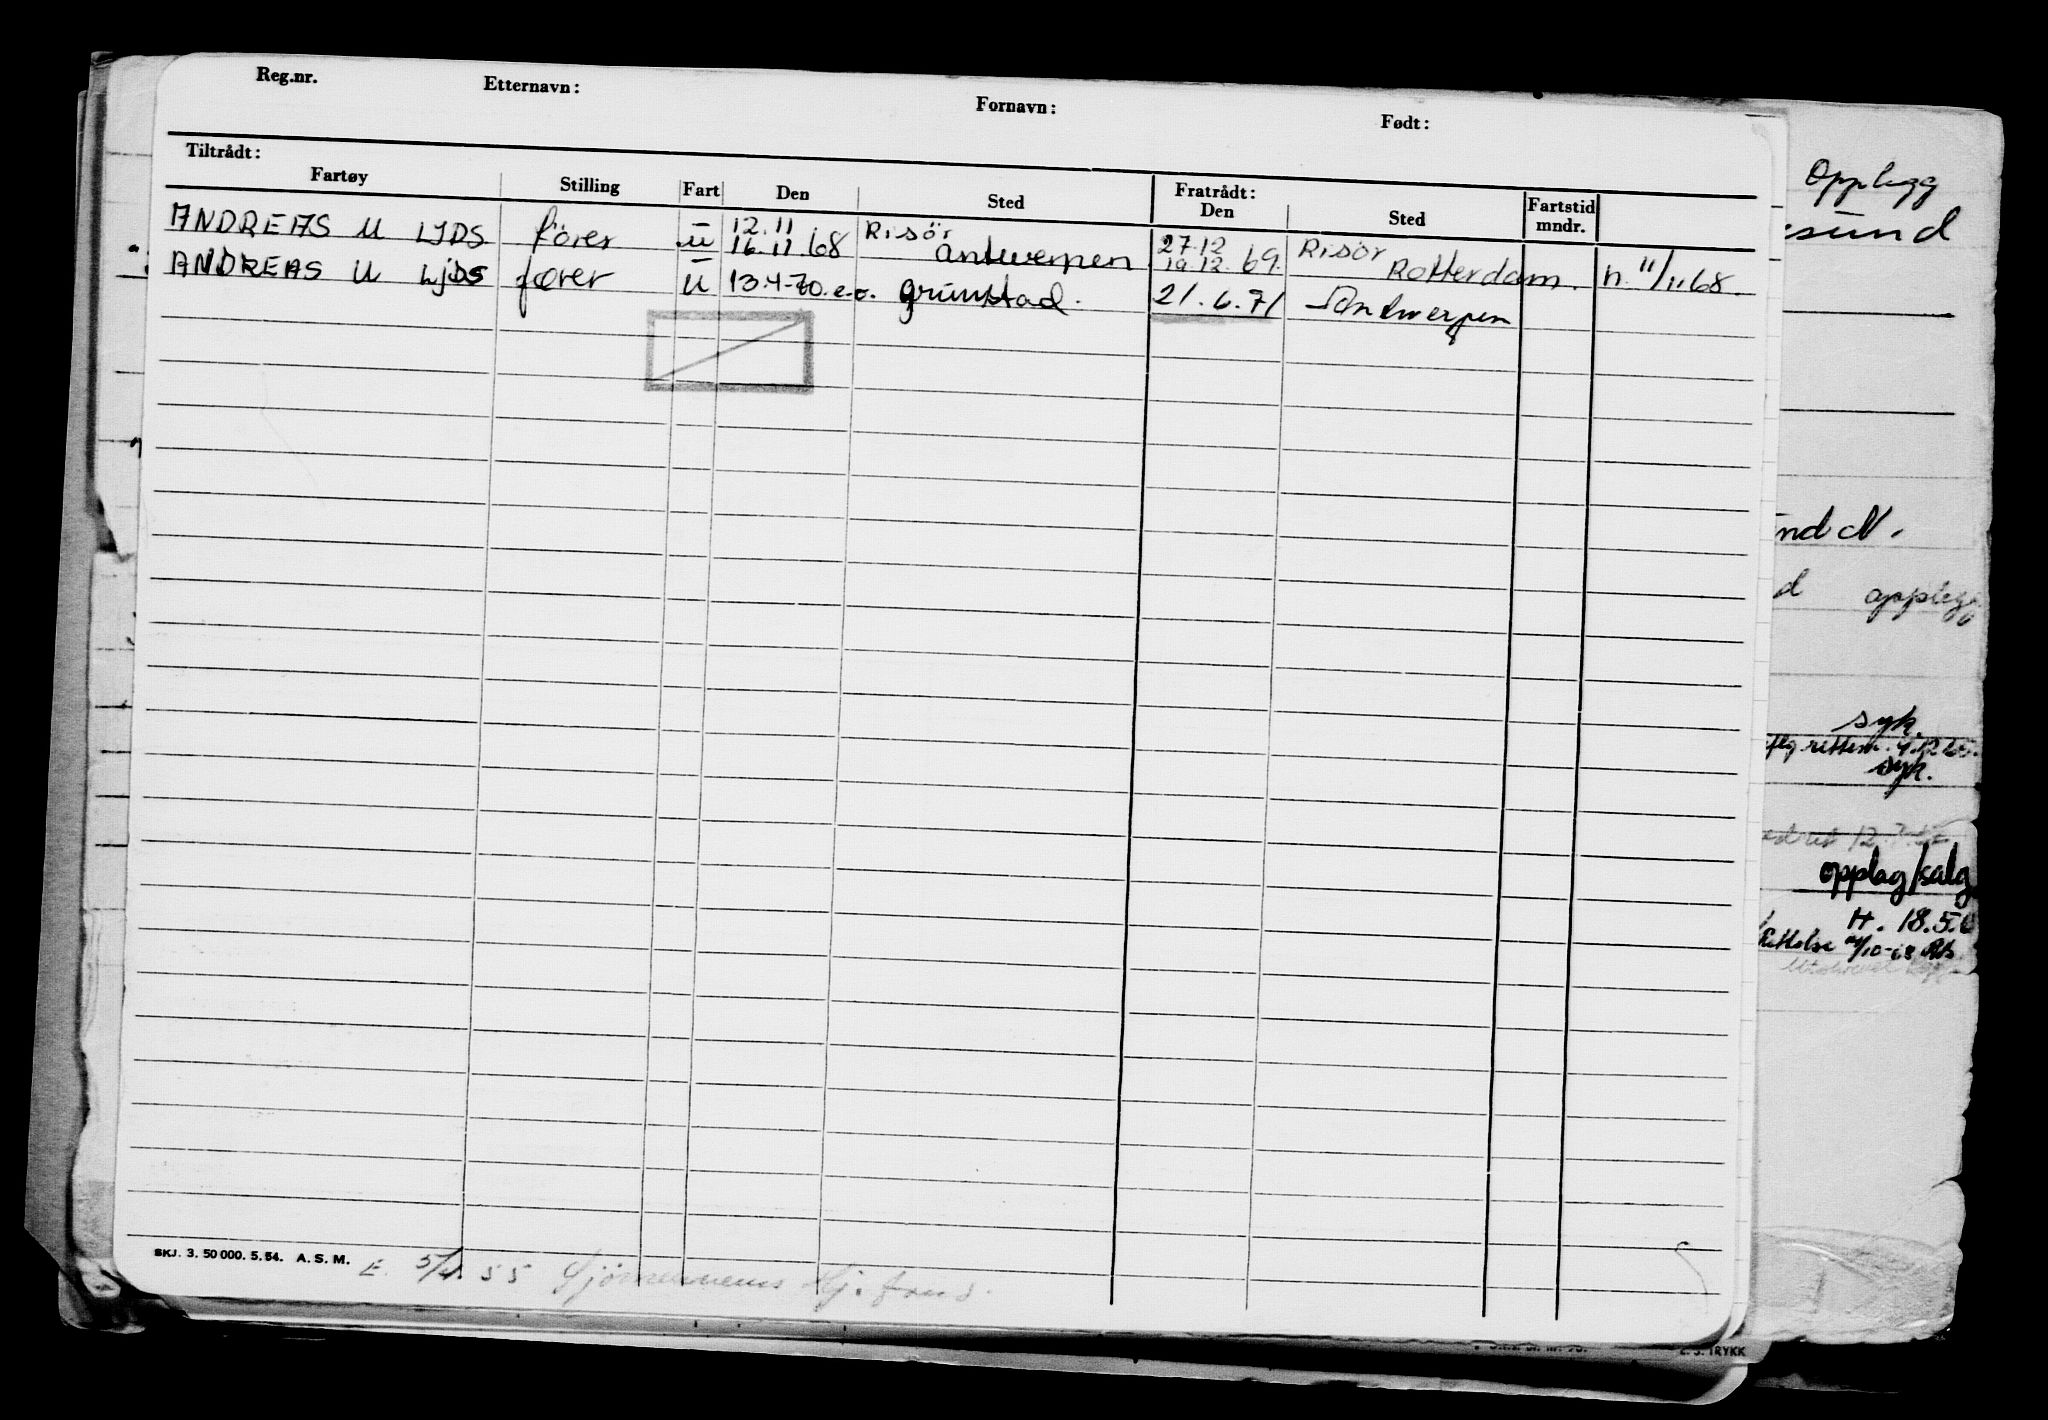 Reg.nr. Etternavn: Fornavn: Født:
Tiltrådt: Fratrådt:
Fartøy Stilling Fart Den Sted Den Sted Fartstid mndr.
ANDREAS U LJDS fører U 12.11 Risør 27.12 Risör
16.11.68 Antwerpen 19.12.69. Rotterdam. n. 11/11 68.
ANDREAS U LjDS fører U 13.4-70. e.o. Grimstad. 21.6.71 Antwerpen
SKJ. 3. 50 000. 5. 54. A. S. M.
E. 55 Hj. fond.
Opplegg
sund
nd N.
d opplegg
syk.
syk.
opplag/salg
H. 18.5.6
Rettelse
TRYKK